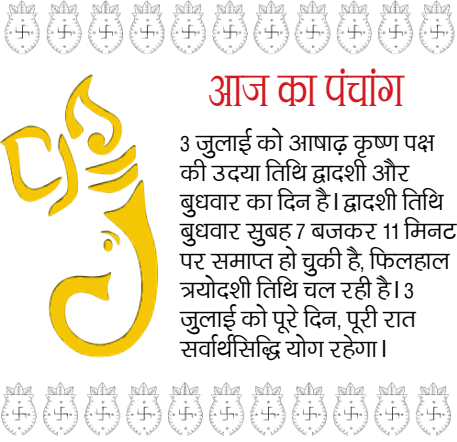 आज का पंचांग
3 जुलाई को आषाढ़ कृष्ण पक्ष
की उदया तिथि द्वादशी और
बुधवार का दिन है। द्वादशी तिथि
बुधवार सुबह 7 बजकर 11 मिनट
पर समाप्त हो चुकी है, फिलहाल
त्रयोदशी तिथि चल रही है। 3
जुलाई को पूरे दिन, पूरी रात
सर्वार्थसिद्धि योग रहेगा।